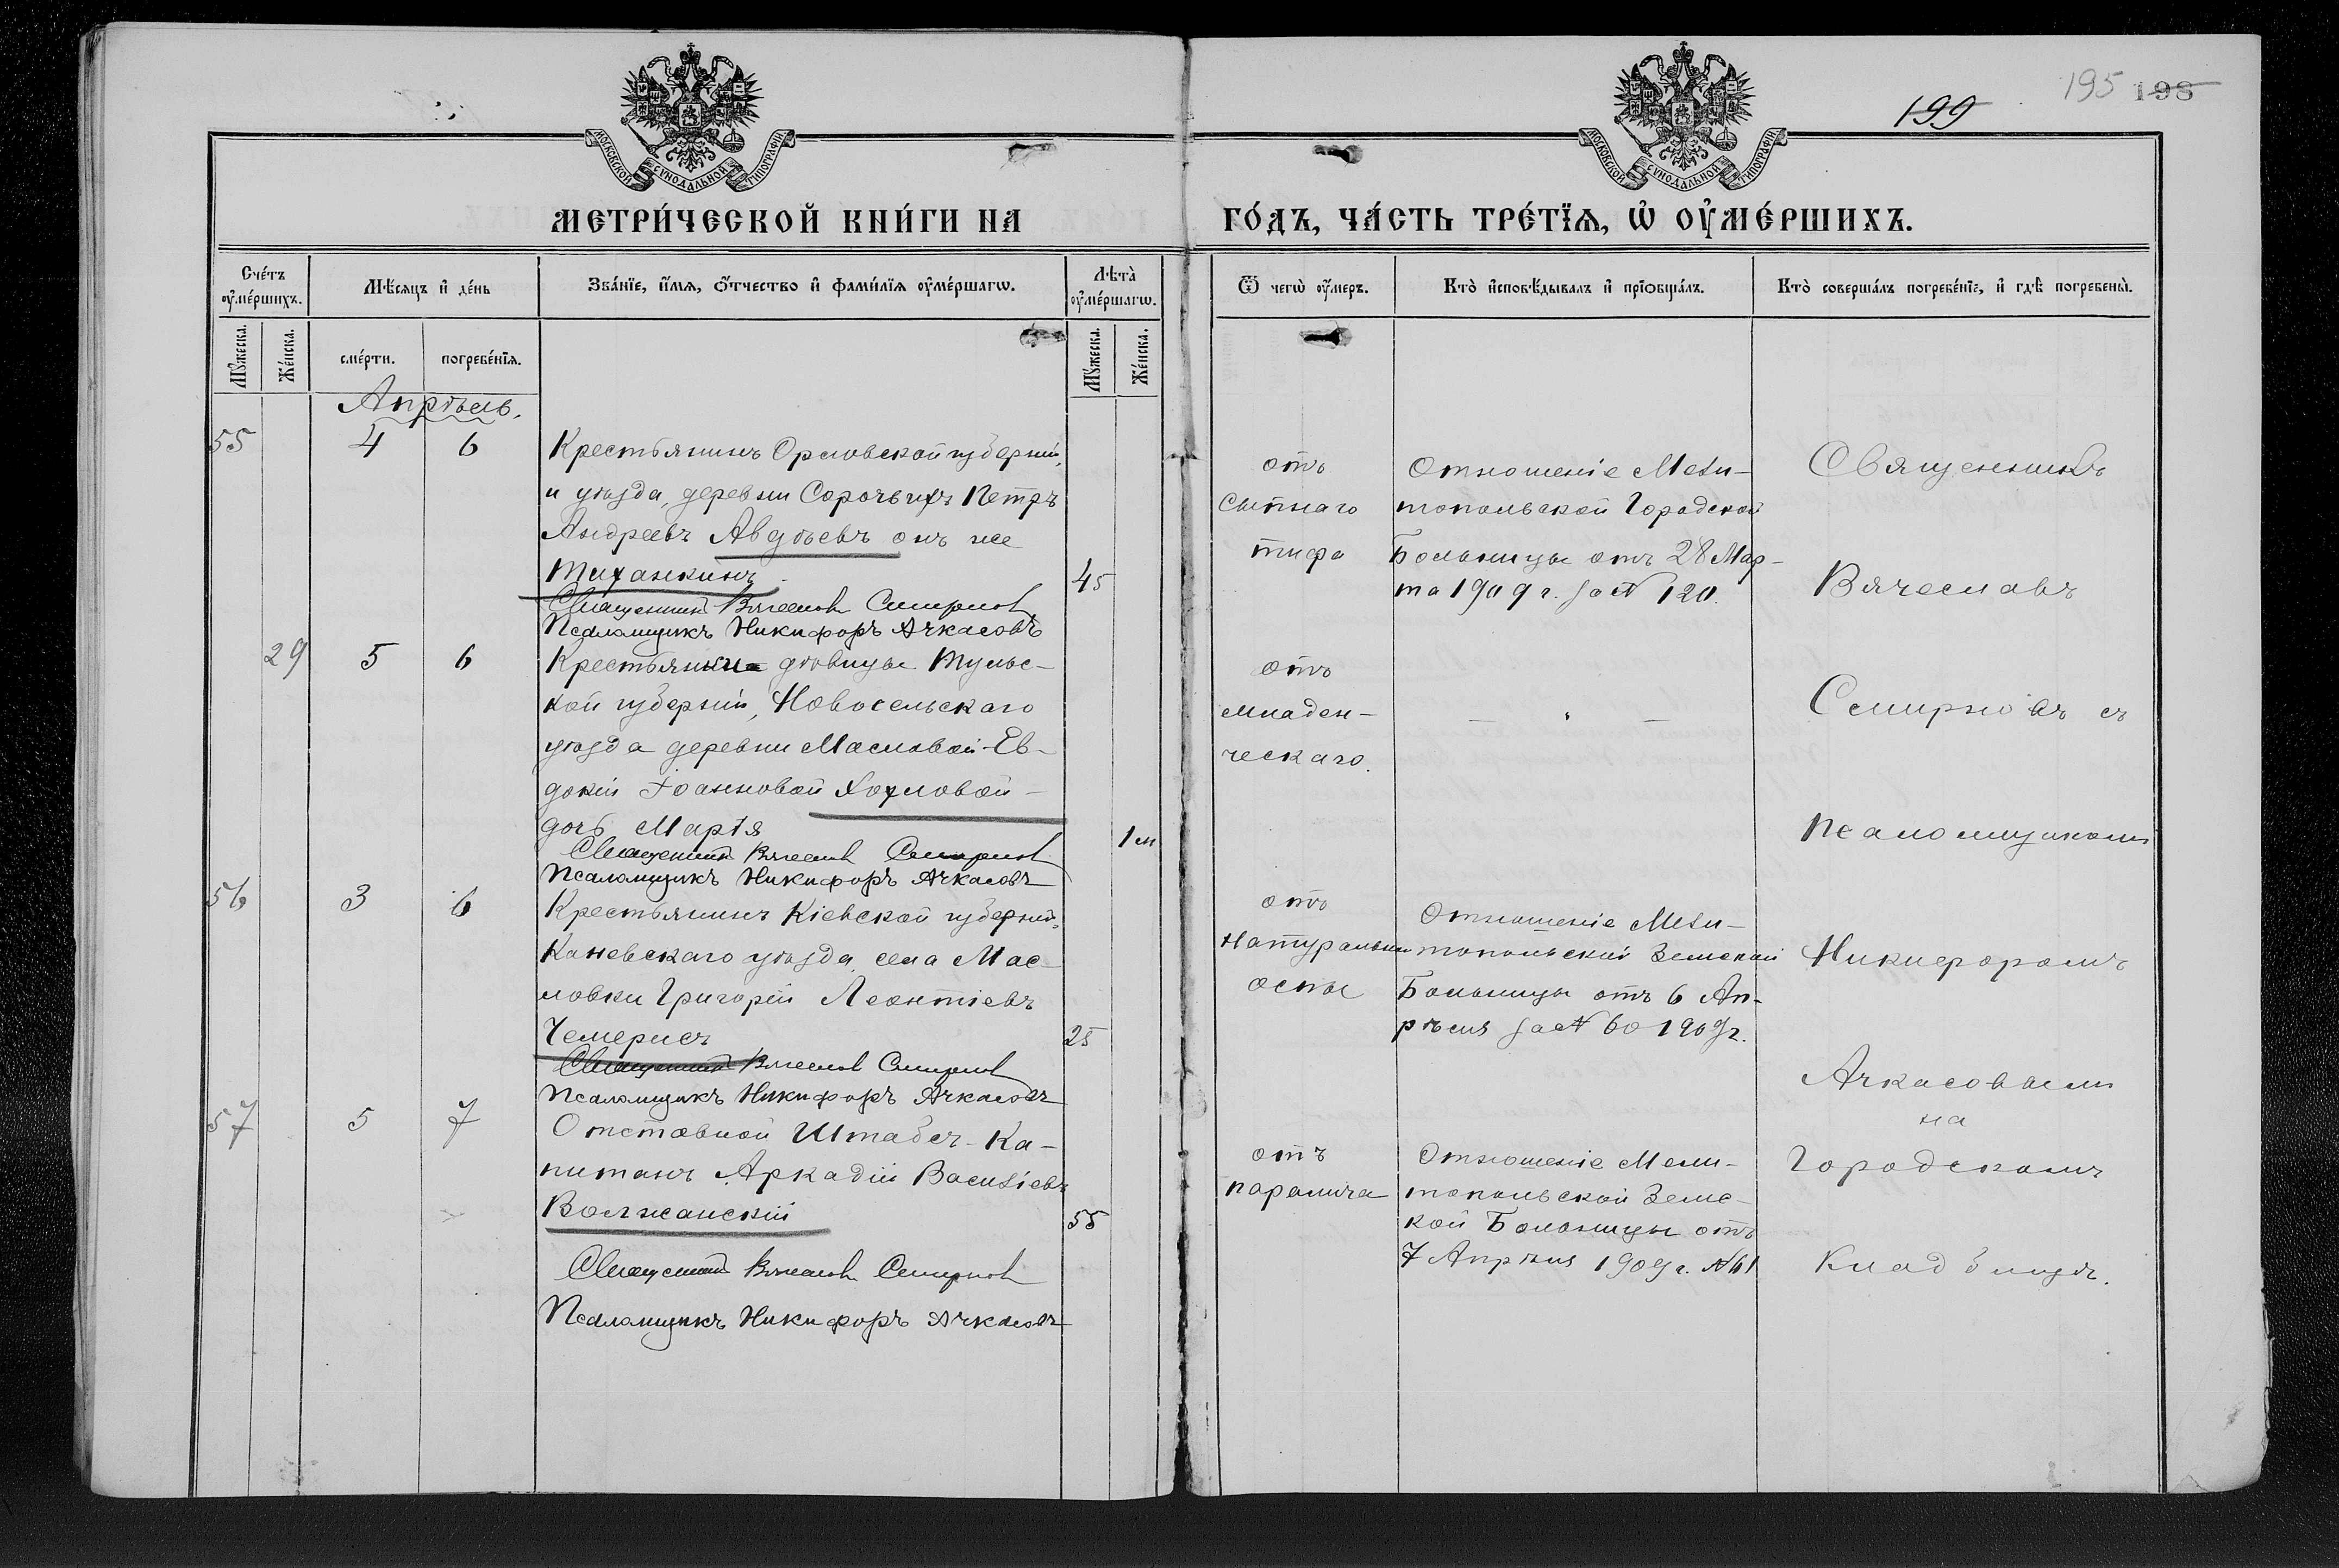 199
195 198
МОСКОВСКОЙ СѴНОДАЛЬНОЙ ТИПОГРАФІИ
МОСКОВСКОЙ СѴНОДАЛЬНОЙ ТИПОГРАФІИ
МЕТРИ́ЧЕСКОЙ КНИ́ГИ НА ГО́ДЪ, ЧА́СТЬ ТРЕ́ТЇѦ, Ѡ҆ ОУ҆МЕ́РШИХЪ.
Сче́тъ оу҆ме́ршихъ.
Мѣ́сѧцъ и҆ де́нь
Зва́нїе, и҆́мѧ, ѻ҆́тчество и҆ фами́лїѧ оу҆ме́ршагѡ.
Лѣта̀ оу҆ме́ршагѡ.
Ѿ чегѡ̀ оу҆́меръ.
Кто̀ и҆сповѣ́дывалъ и҆ прїѡбща́лъ.
Кто̀ соверша́лъ погребе́нїе, и҆ гдѣ̀ погребены̀.
Мꙋ́жеска.
Же́нска.
сме́рти.
погребе́нїѧ.
Мꙋ́жеска.
Же́нска.
Апрѣль.
55 4 6
Крестьянинъ Орловской губерніи,
и уѣзда, деревни Сорочьихъ Петръ
Андреевъ Авдѣевъ онъ же
Тиханкинъ 45
Священникъ Вячеславъ Смирновъ
Псаломщикъ Никифоръ Ачкасовъ
отъ
Сыпнаго
тифа
Отношеніе Мели-
топольской Городской
Больницы отъ 28 Мар-
та 1909 г. за № 120.
29 5 6
Крестьянки дѣвицы Тульс-
кой губерніи, Новосельскаго
уѣзда деревни Масловой Ев-
докіи Іоанновой Хохловой -
дочь Марія 1 м
Священникъ Вячеславъ Смирновъ
Псаломщикъ Никифоръ Ачкасовъ
отъ
младен-
ческаго.
— " —
56 3 6
Крестьянинъ Кіевской губерніи,
Каневскаго уѣзда, села Мас-
ловки Григорій Леонтіевъ
Чемерисъ 25
Священникъ Вячеславъ Смирновъ
Псаломщикъ Никифоръ Ачкасовъ
отъ
Натуральной
оспы
Отношеніе Мели-
топольской Земской
Больницы отъ 6 Ап-
рѣля за № 60 1909 г.
57 5 7
Отставной Штабсъ-Ка-
питанъ Аркадій Василіевъ
Волжанскій 55
Священникъ Вячеславъ Смирновъ
Псаломщикъ Никифоръ Ачкасовъ
отъ
паралича
Отношеніе Мели-
топольской Земс-
кой Больницы отъ
7 Апрѣля 1909 г. № 61
Священникъ
Вячеславъ
Смирновъ съ
Псаломщикомъ
Никифоромъ
Ачкасовымъ
на
Городскомъ
Кладбищѣ.